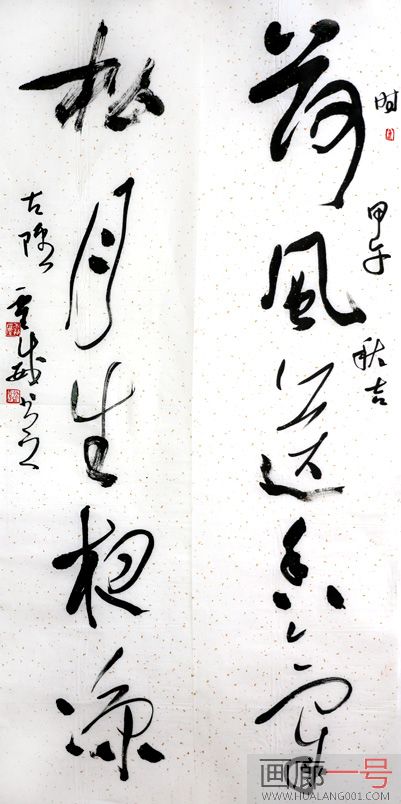 荷風送香氣
时甲午秋吉
松月生夜凉
画廊一号
WWW.HUALANG001.COM